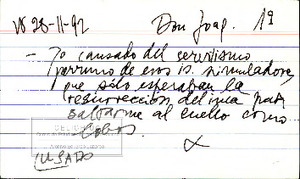 28-11-92 Don Joaq. 1ª
- Yo causado del servilismo
perruno de esos is. simuladores,
que sólo esperaban la
resurrección del mia para
saltarme al cuello como
lobos.
USADO